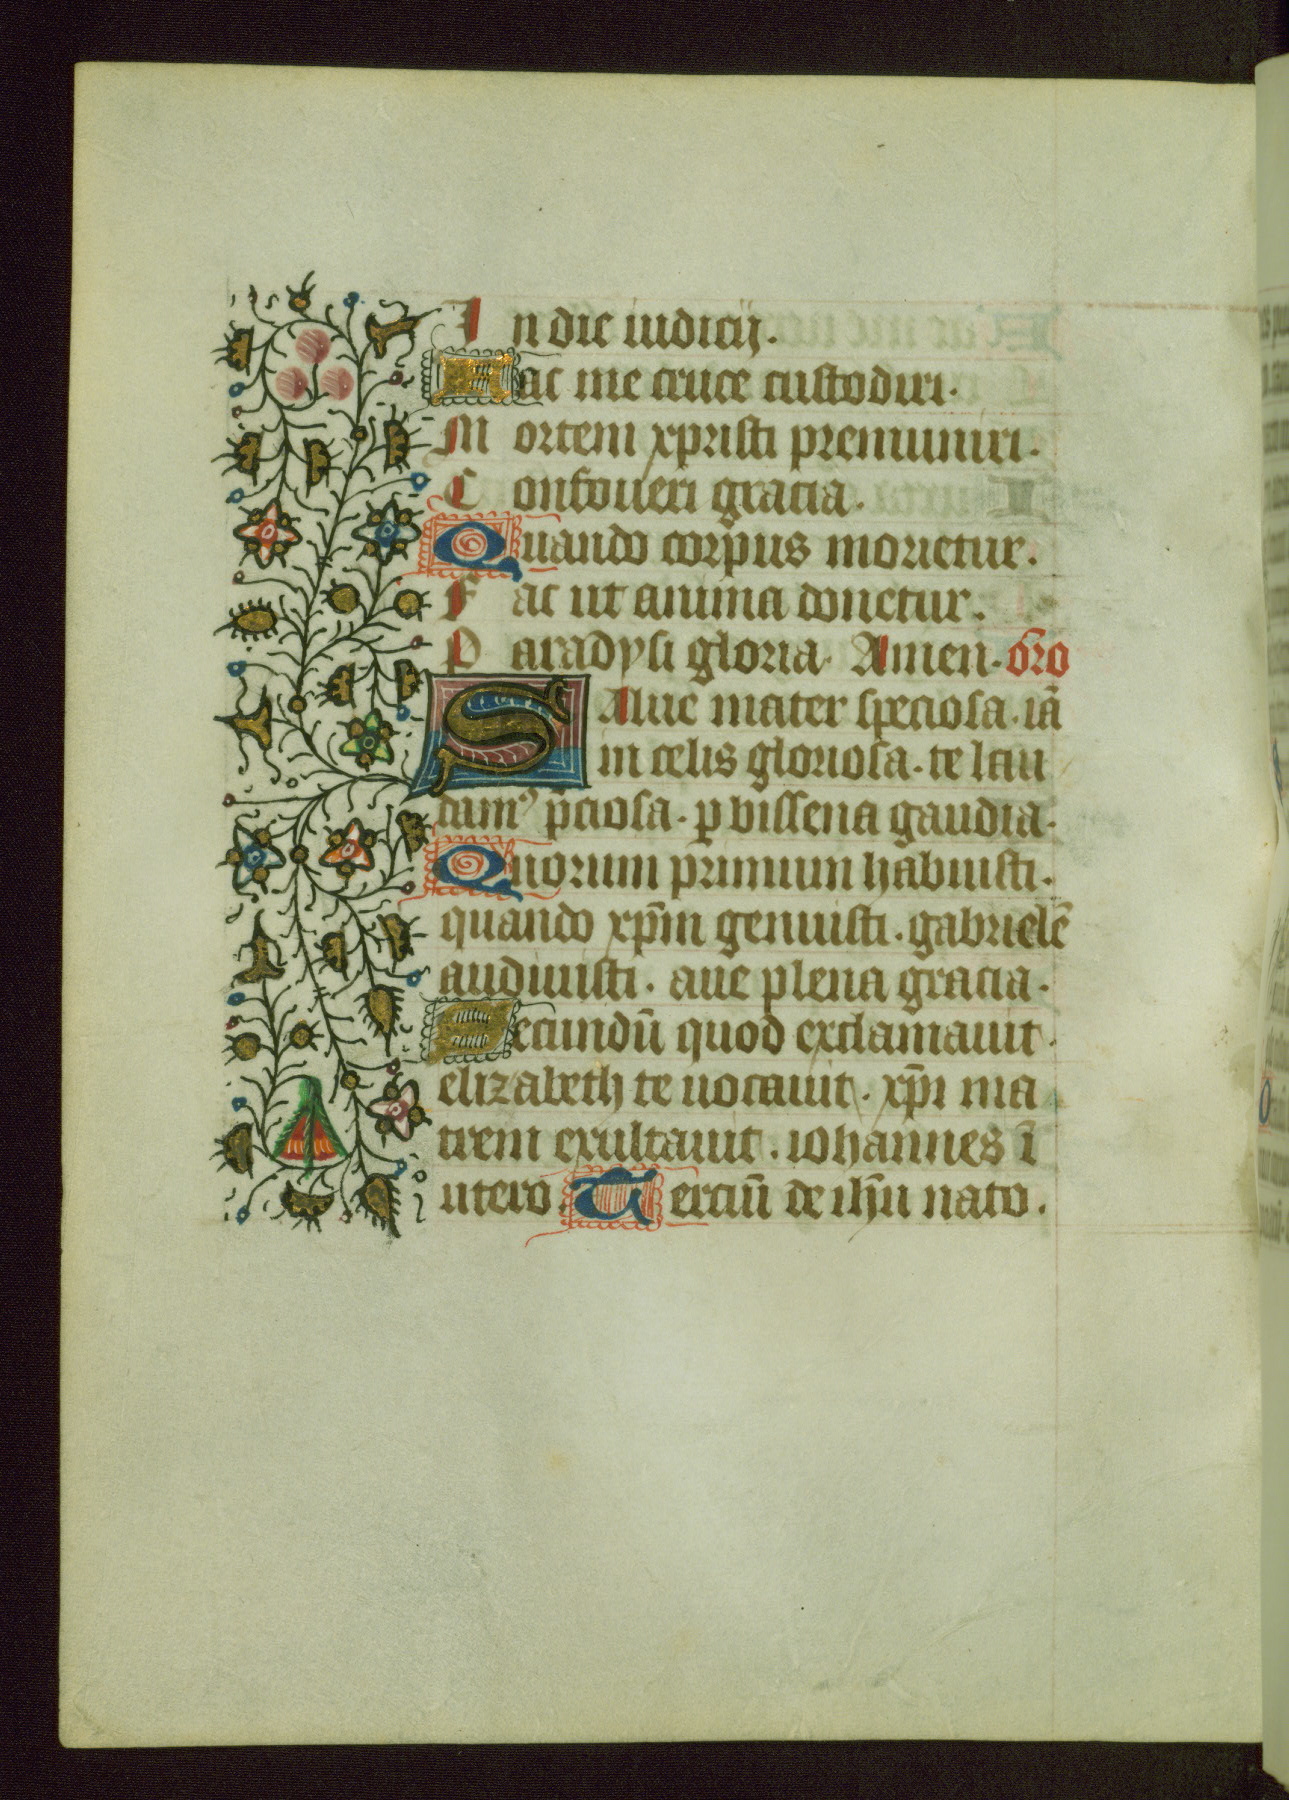 In die iudicij.
Fac me cruce custodiri.
Mortem xpristi premuniri.
Confoueri gracia.
Quando corpus morietur.
Fac ut anima donetur.
Paradysi gloria. Amen. oro
SAlue mater speciosa. iā
in celis gloriosa. te lau
damꝰ p̄ciosa. ꝑ bissena gaudia.
Quorum primum habuisti.
quando xp̄m genuisti. gabrielē
audiuisti. aue plena gracia.
Secundū quod exclamauit.
elizabeth te uocauit. xp̄i ma
trem exultauit. iohannes ī
utero. Terciū de ih̄u nato.